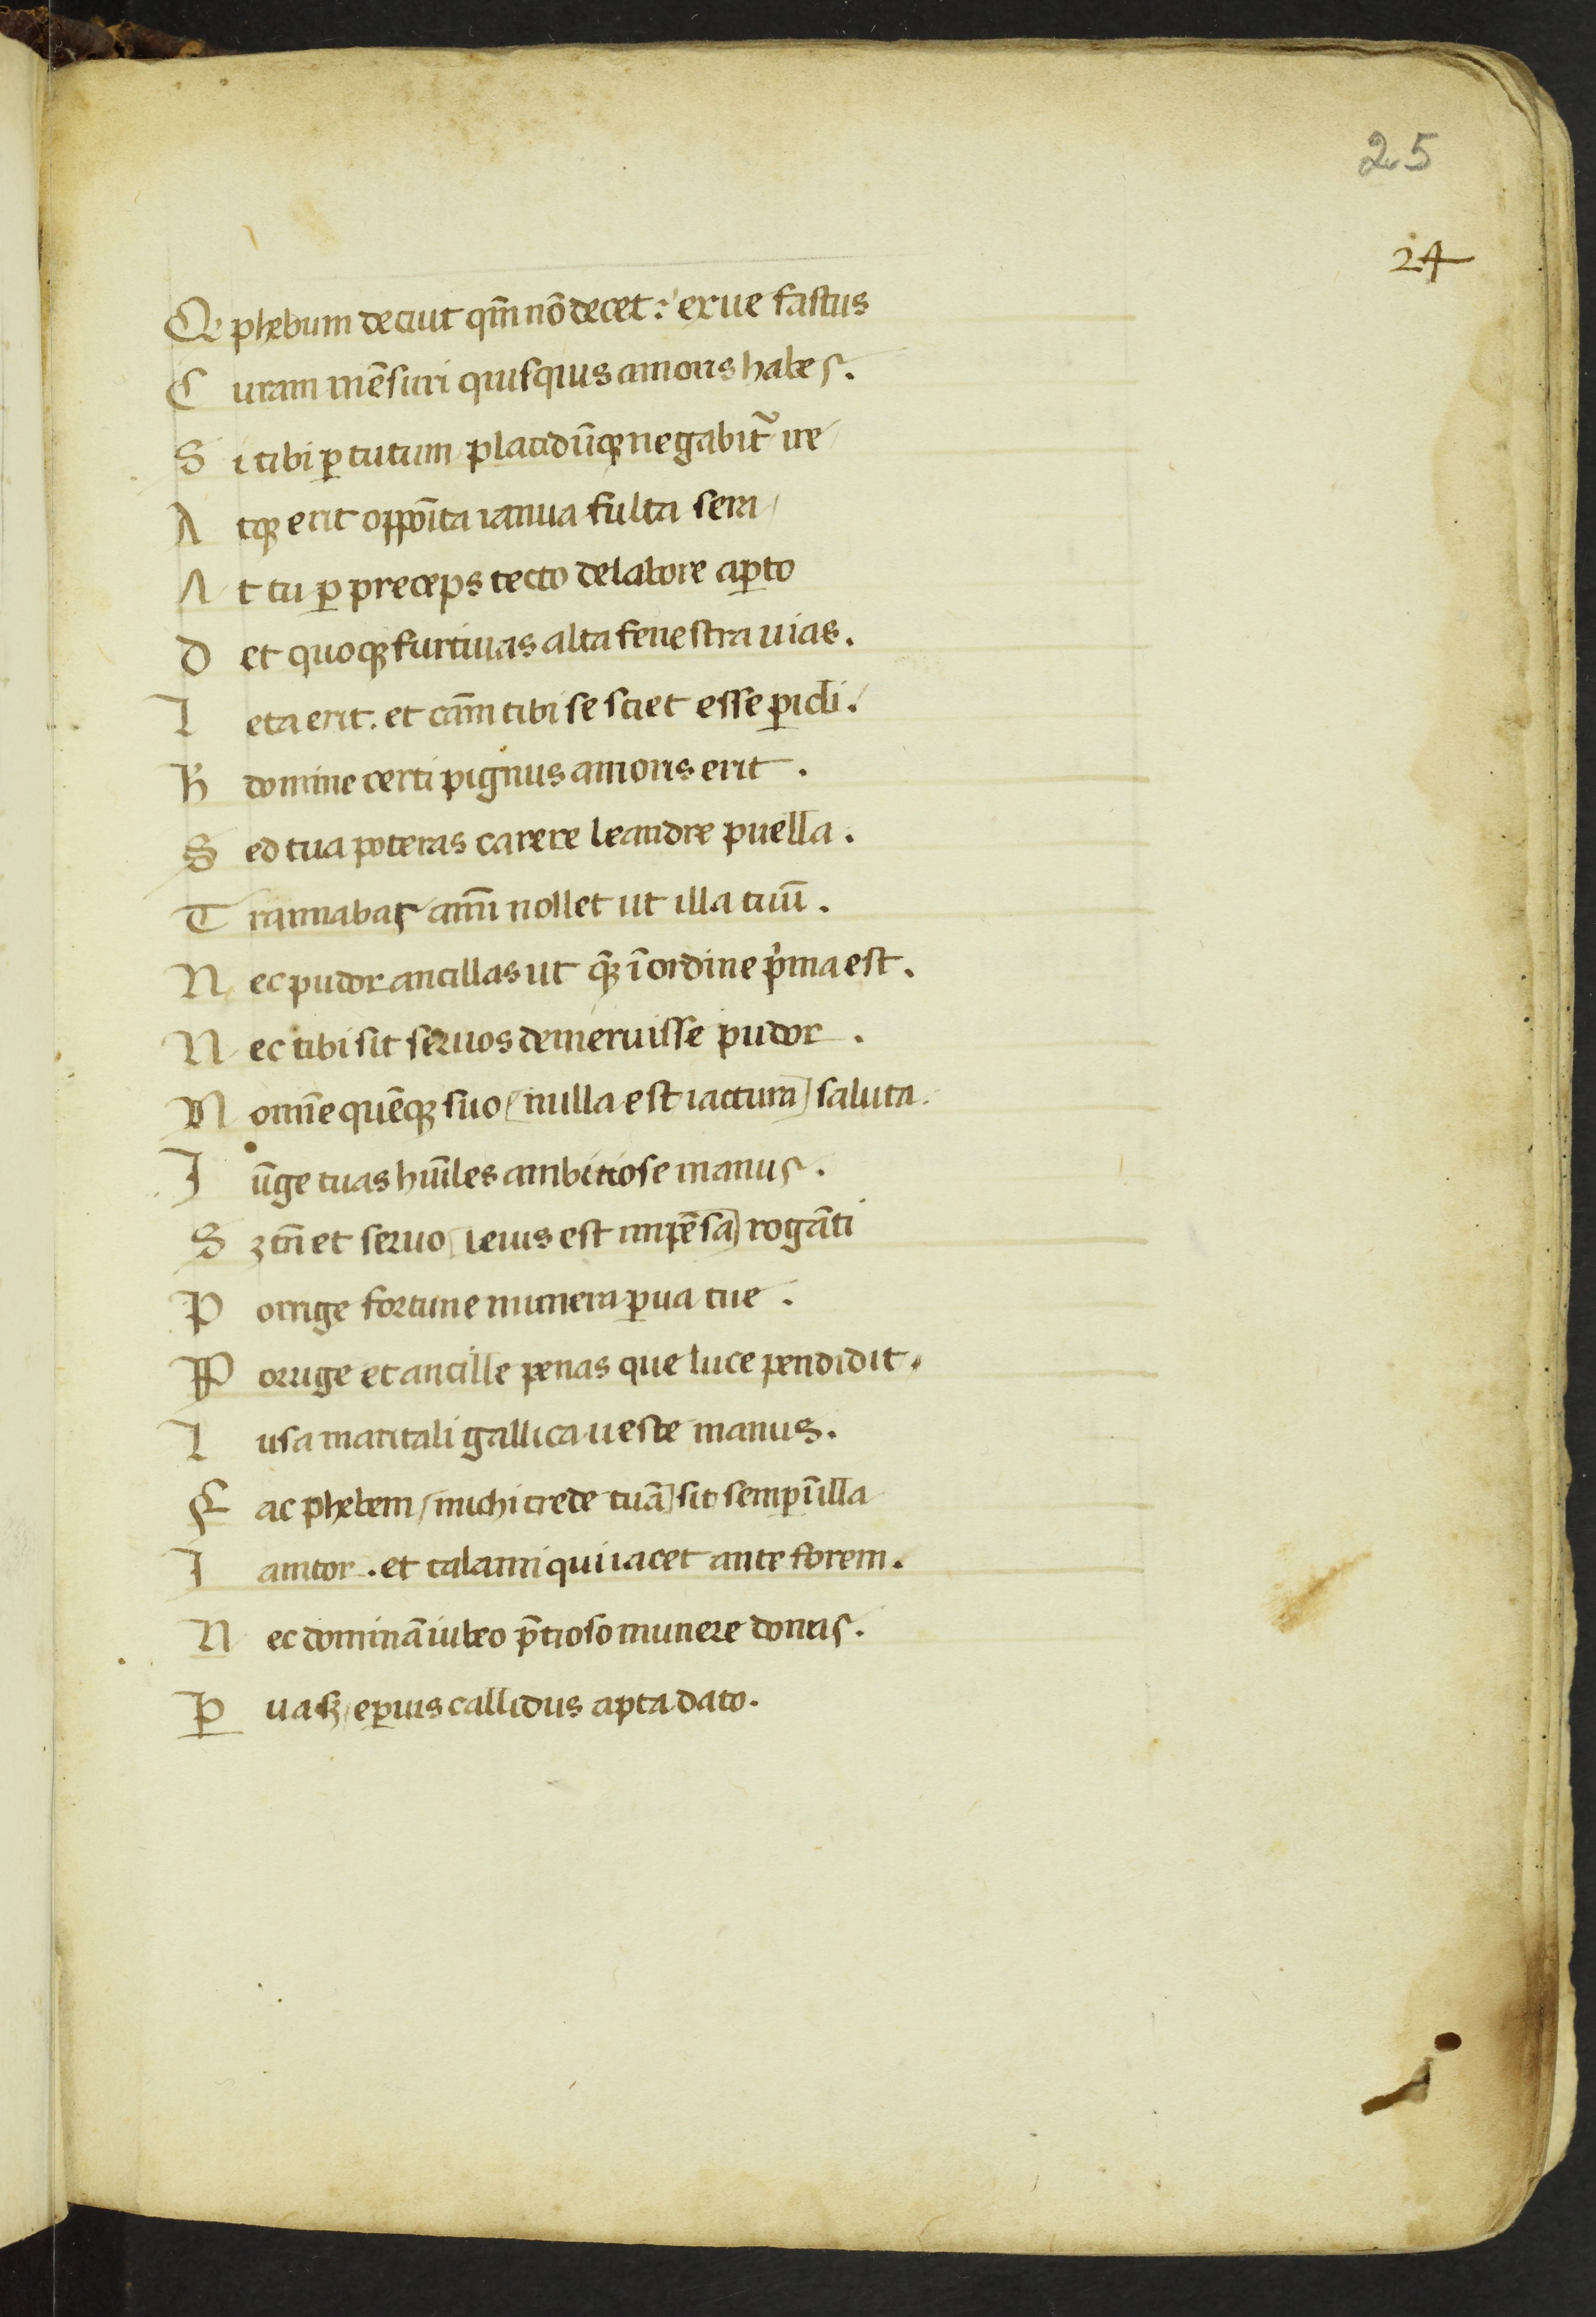 25
24
Q phebum decuit qm̄ nō decet: exue fastus
C uram mēsuri quisquis amoris habes.
S i tibi ꝑ tutum placidūqꝫ negabit᷑ ire
A tqꝫ erit oppoīta ianua fulta sera
A t tu ꝑ preceps tecto delabore aꝑto
D et quoqꝫ furtiuas alta fenestra uias.
L eta erit. et cām tibi se sciet esse ꝑicli.
H domine certi pignus amoris erit.
S ed tua poteras carere leandre puella.
T rannabas aīm nosset ut illa tuū.
N ec pudor ancillas ut qꝫ ī ordine pͥma est.
N ec tibi sit seruos demeruisse pudor.
N omīe quēqꝫ suo (nulla est iactura) saluta.
I ūge tuas hūiles ambitiose manus.
S ꝫ tn̄ et seruo (leuis est impēsa) rogāti
P orrige fortune munera ꝑua tue.
P orrige et ancille penas que luce pendidit.
L usa maritali gallica ueste manus.
F ac phebem (michi crede tuā) sit semꝑ ī illa
I anitor. et talami qui iacet ante forem.
N ec dominā iubeo p̄tioso munere dones.
Ꝑ ua sꝫ e ꝑuis callidus apta dato.